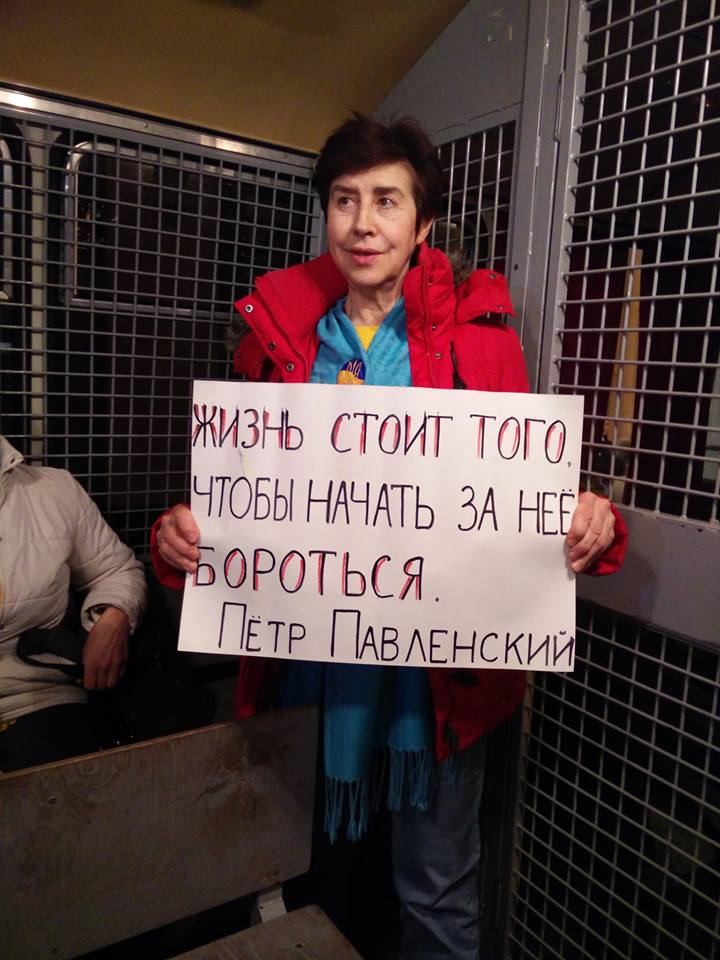 ЖИЗНЬ СТОИТ ТОГО,
ЧТОБЫ НАЧАТЬ ЗА НЕЁ
БОРОТЬСЯ.
ПЁТР ПАВЛЕНСКИЙ